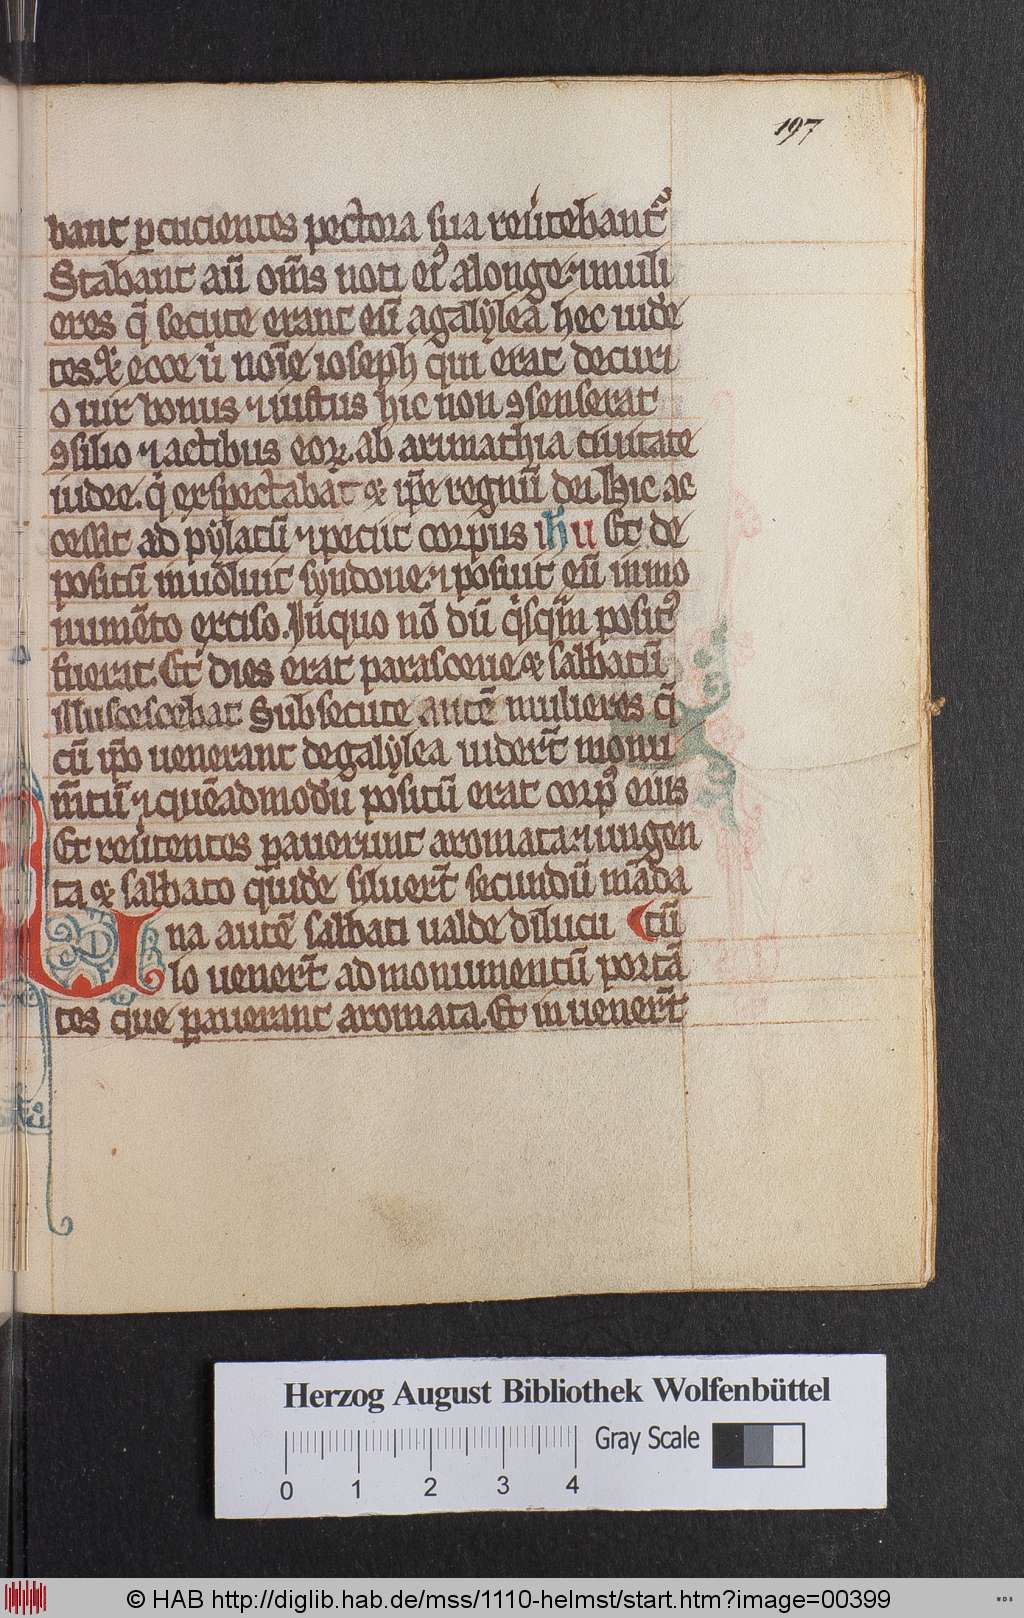 197
bant ꝑcucientes pectora sua reu̾tebant᷑
Stabant aū om̄s noti eiꝰ alonge. ⁊ muli
eres q̄ secute erant eū agalylea hec uidē
tes. ⁊ ecce uͥ noīe ioseph qui erat decuri
o uir bonus ⁊ iustus hic non ꝯsenserat
ꝯsilio ⁊ actibus eoꝝ. ab arimathia ciuitate
iudee. qͥ exspectabat ⁊ ip̄e regnū dei. Hic ac
cessit ad pylatū ⁊ petiit corpus ihu Et de
positū inuoluit syndone. ⁊ posuit eū in mo
numēto exciso. In quo nō dū qͥsqͣm positꝰ
fuerat. Et dies erat parasceue ⁊ sabbatū
illuscescebat Subsecute autē mulieres q̄
cū ip̄o uenerant degalylea uider̄t monu
m̄tū ⁊ quēadmodū positū erat corpꝰ eius
Et reu̾tentes ꝑauerunt aromata. ⁊ ungen
ta ⁊ sabbato qͥdē siluer̄t secundū mādā
Una autē sabbati ualde dilucu tū
lo uener̄t ad monumentū portā
tes que ꝑauerant aromata. Et in uener̄t
Herzog August Bibliothek Wolfenbüttel
Gray Scale
0 1 2 3 4
© HAB http://diglib.hab.de/mss/1110-helmst/start.htm?image=00399